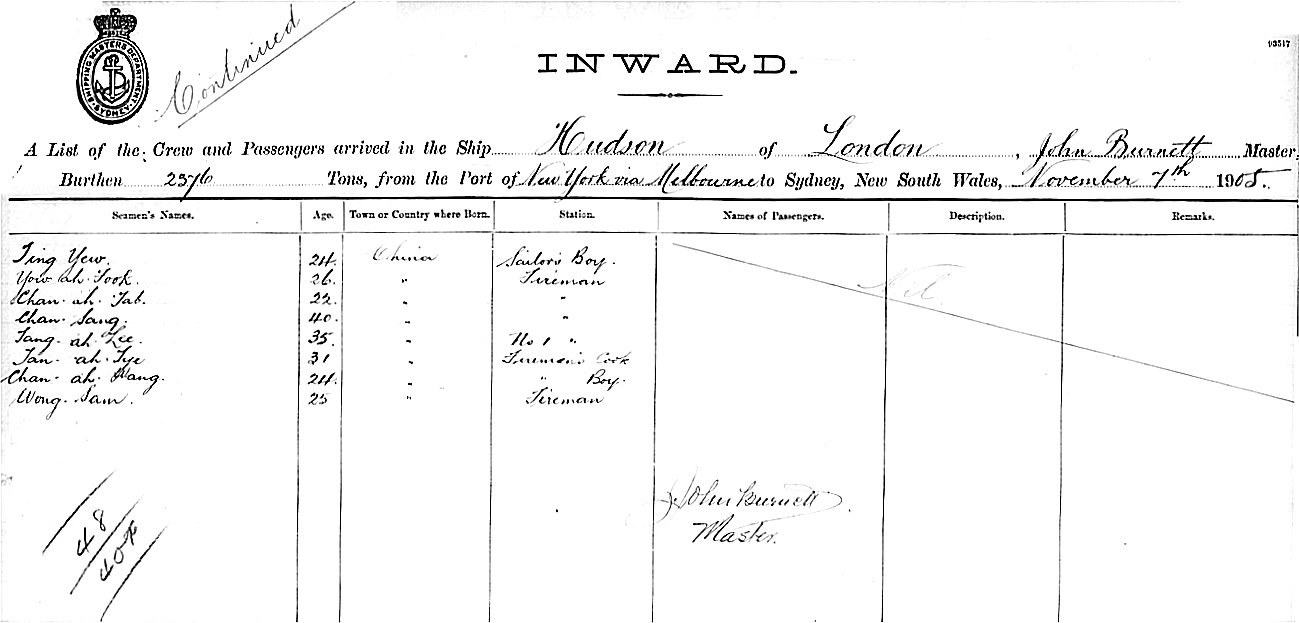 SHIPPING MASTERS DEPARTMENT SYDNEY
Continued
93517
INWARD.
A List of the Crew and Passengers arrived in the Ship Hudson of London, John Burnett Master
Burthen 2376 Tons, from the Port of New York via Melbourne to Sydney, New South Wales, November 7th 1905.
Seamen's Names. Age. Town or Country where Born. Station. Names of Passengers. Description. Remarks.
Ting Yew. 24. China Sailor's Boy. Nil.
Yow ah Fook. 26. " Fireman
Chan ah Tab. 22. " "
Chan Sang. 40. " "
Tang ah Lee. 35. " No 1 "
Tan ah Tye 31 " Fireman's Cook
Chan ah Wang. 24. " " Boy.
Wong Sam. 25 " Fireman
John Burnett
Master.
48
40